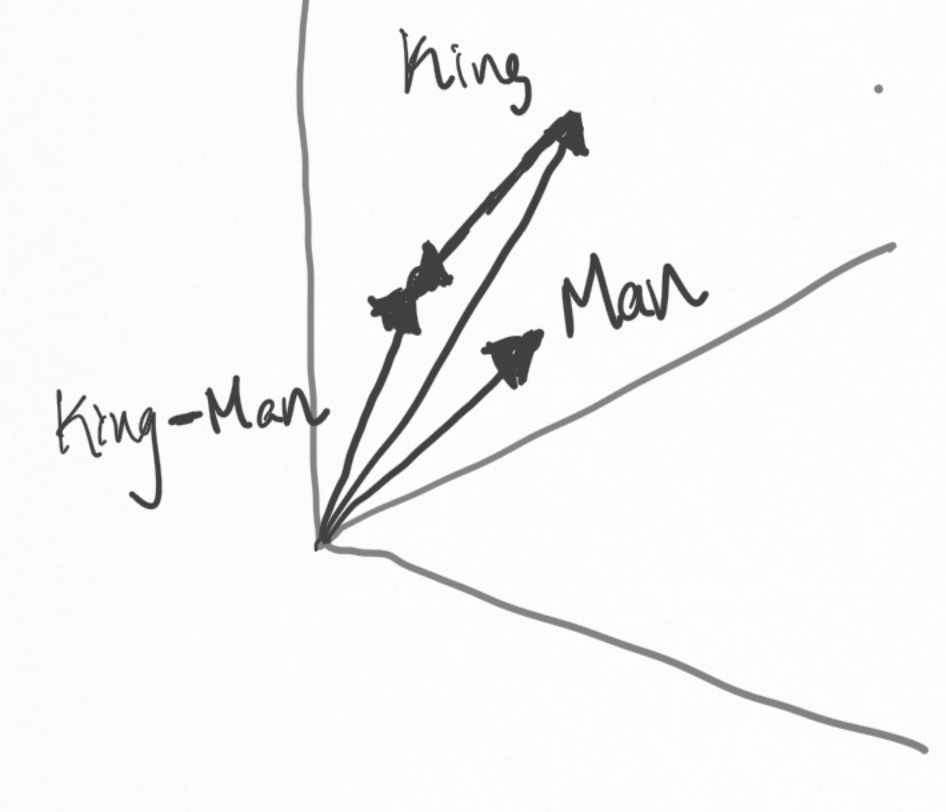 King
Man
King-Man